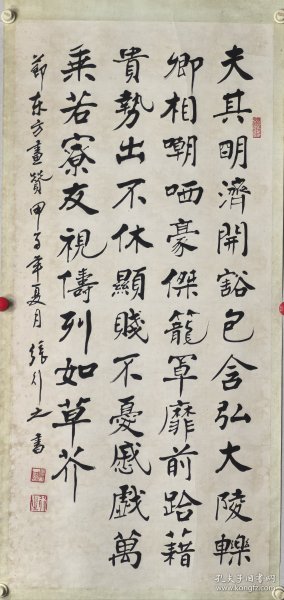 夫其明濟開豁包含弘大陵轢
卿相嘲哂豪傑籠罩靡前跆藉
貴勢出不休顯賤不憂慼戲萬
乘若寮友視儔列如草芥
節东方畫贊甲子年夏月張之書
孔夫子旧书网